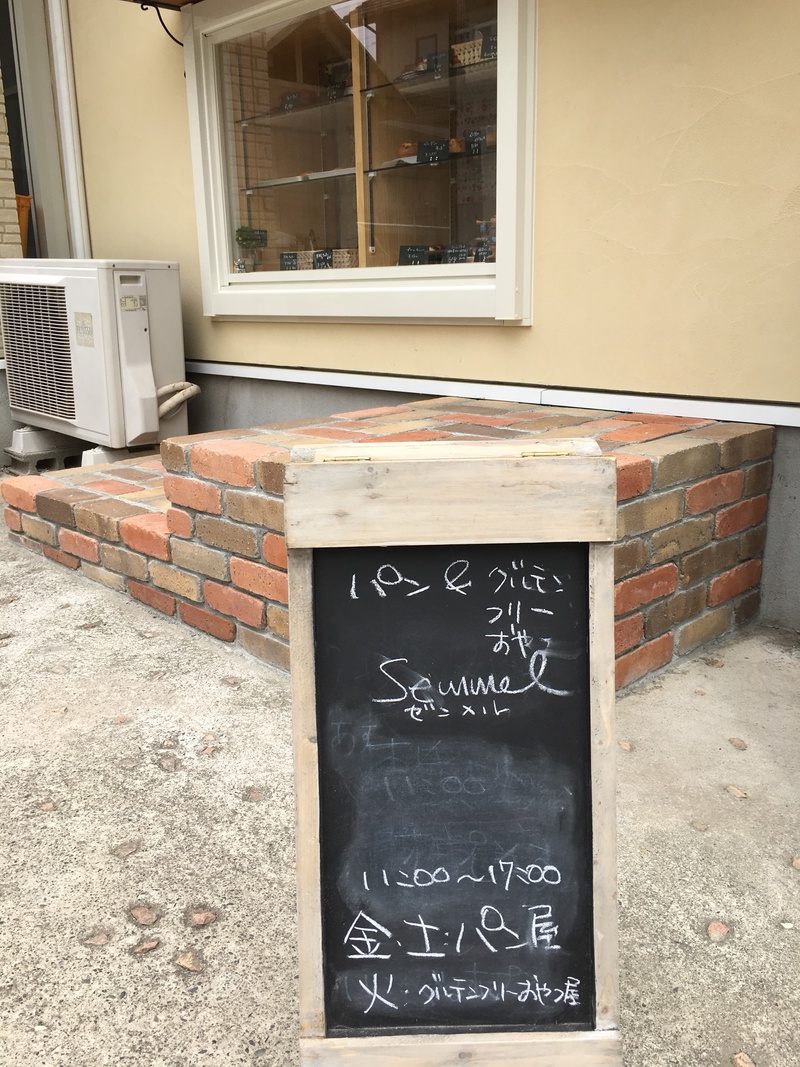 パン & グルテン
フリー
おやつ
Semmel
ゼンメル
11:00～17:00
金・土：パン屋
火：グルテンフリーおやつ屋